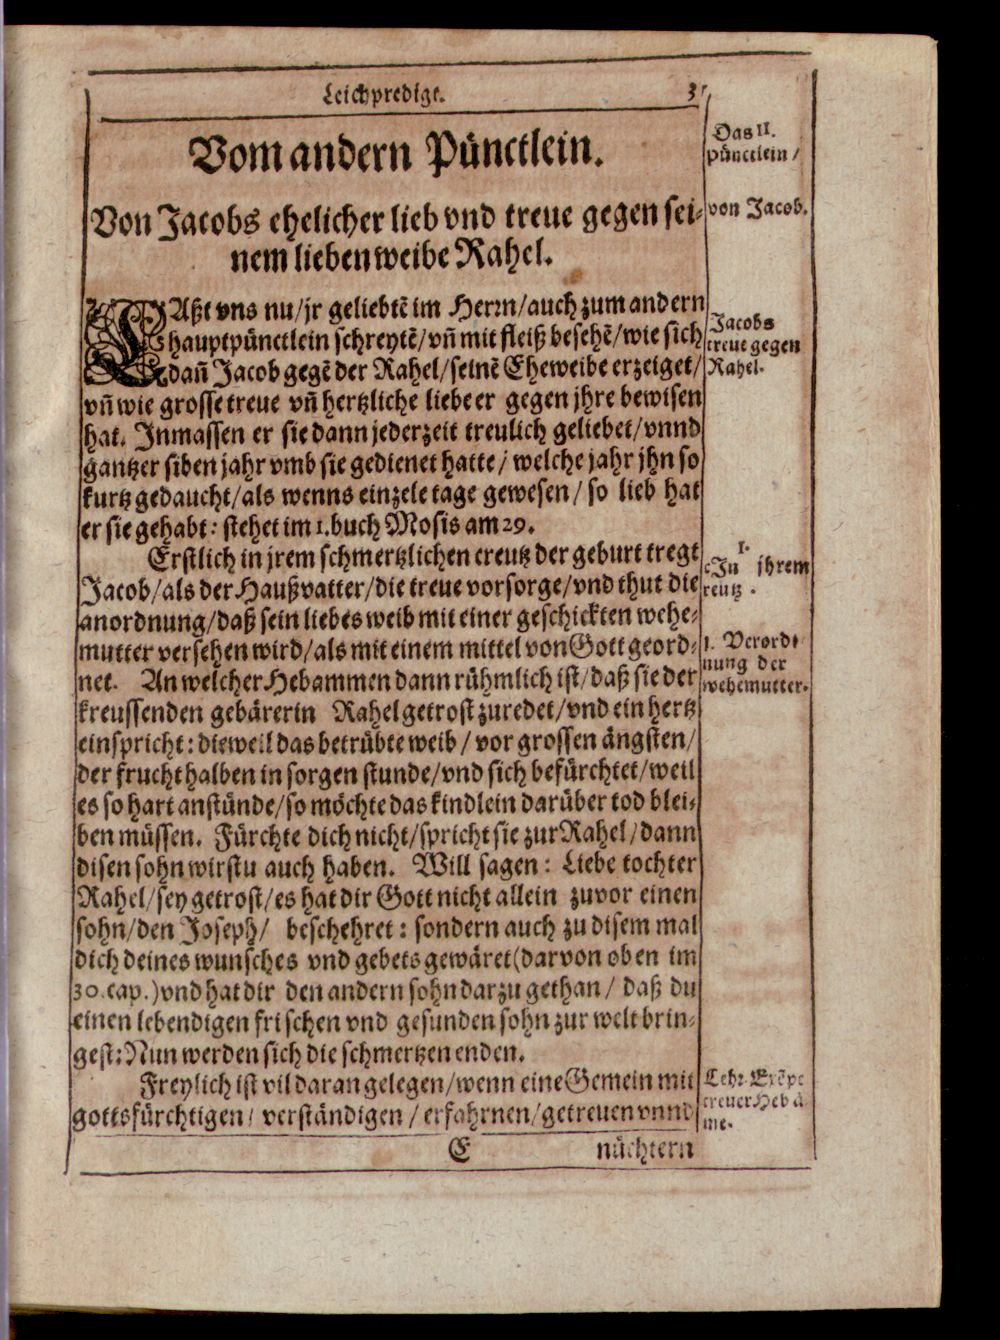 Leichpredigt.
Vom andern Pünctlein.
Das II.
pünctlein /
Von Jacobs ehelicher lieb vnd treue gegen sei-
nem lieben weibe Rahel.
von Jacob.
LAßt vns nu/jr geliebtẽ im Herrn/auch zum andern
hauptpünctlein schreytẽ/vñ mit fleiß besehẽ/wie sich
dañ Jacob gegẽ der Rahel/seinẽ Eheweibe erzeiget/
vñ wie grosse treue vñ hertzliche liebe er gegen jhre bewisen
hat. Inmassen er sie dann jederzeit treulich geliebet/vnnd
gantzer siben jahr vmb sie gedienet hatte/ welche jahr jhn so
kurtz gedaucht/als wenns einzele tage gewesen/ so lieb hat
er sie gehabt: stehet im 1.buch Mosis am 29.
Jacobs
treue gegen
Rahel.
Erstlich in jrem schmertzlichen creutz der geburt tregt
Jacob/als der Haußvatter/die treue vorsorge/vnd thut die
anordnung/daß sein liebes weib mit einer geschickten wehe-
mutter versehen wird/als mit einem mittel von Gott geord-
net. An welcher Hebammen dann rühmlich ist/daß sie der
kreussenden gebärerin Rahel getrost zuredet/vnd ein hertz
einspricht: dieweil das betrübte weib/ vor grossen ängsten/
der frucht halben in sorgen stunde/vnd sich befürchtet/weil
es so hart anstünde/so möchte das kindlein darüber tod blei-
ben müssen. Fürchte dich nicht/spricht sie zur Rahel/dann
disen sohn wirstu auch haben. Will sagen: Liebe tochter
Rahel/sey getrost/es hat dir Gott nicht allein zuvor einen
sohn/den Joseph/ beschehret: sondern auch zu disem mal
dich deines wunsches vnd gebets gewäret(darvon oben im
30.cap.)vnd hat dir den andern sohn darzu gethan/ daß du
einen lebendigen frischen vnd gesunden sohn zur welt brin-
gest: Nun werden sich die schmertzen enden.
1.
In jhrem
creutz.
1. Verord-
nung der
wehemutter.
Freylich ist vil daran gelegen/wenn eine Gemein mit
gottsfürchtigen/ verständigen/ erfahrnen/getreuen vnnd
Lehr.
treuer Hebã
me.
E nüchtern